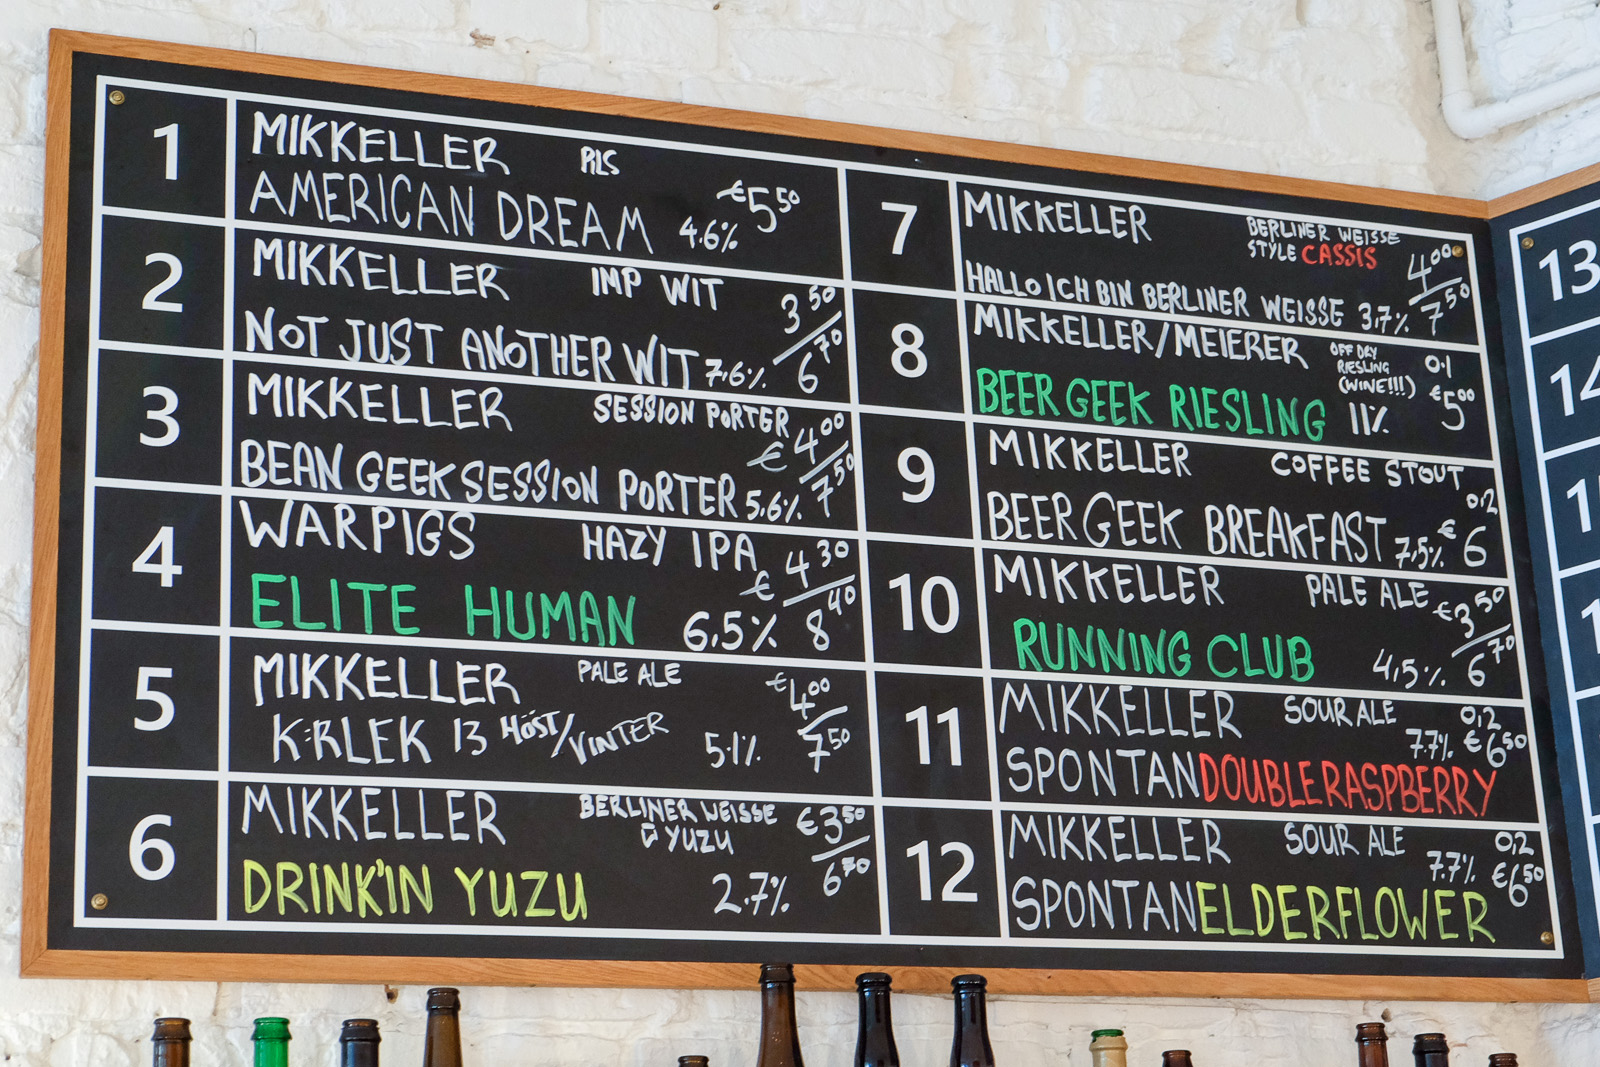 1
MIKKELLER PILS
AMERICAN DREAM 4.6% €5⁵⁰
2
MIKKELLER IMP WIT
NOT JUST ANOTHER WIT 7,6% 3⁵⁰/6⁷⁰
3
MIKKELLER SESSION PORTER
BEAN GEEK SESSION PORTER 5,6% €4⁰⁰/7⁵⁰
4
WARPIGS HAZY IPA
ELITE HUMAN 6,5% €4³⁰/8⁴⁰
5
MIKKELLER PALE ALE
K:RLEK 13 HÖST/VINTER 5.1% €4⁰⁰/7⁵⁰
6
MIKKELLER BERLINER WEISSE
YUZU
DRINK'IN YUZU 2.7% €3⁵⁰/6⁷⁰
7
MIKKELLER BERLINER WEISSE
STYLE CASSIS
HALLO ICH BIN BERLINER WEISSE 3.7% 4⁰⁰/7⁵⁰
8
MIKKELLER/MEIERER OFF DRY
RIESLING
(WINE!!!)
BEER GEEK RIESLING 11% 0.1 €5⁰⁰
9
MIKKELLER COFFEE STOUT
BEER GEEK BREAKFAST 7,5% 0,2 €6
10
MIKKELLER PALE ALE
RUNNING CLUB 4,5% €3⁵⁰/6⁷⁰
11
MIKKELLER SOUR ALE 0,2
7.7% €6⁵⁰
SPONTANDOUBLERASPBERRY
12
MIKKELLER SOUR ALE 0,2
7.7% €6⁵⁰
SPONTANELDERFLOWER
13